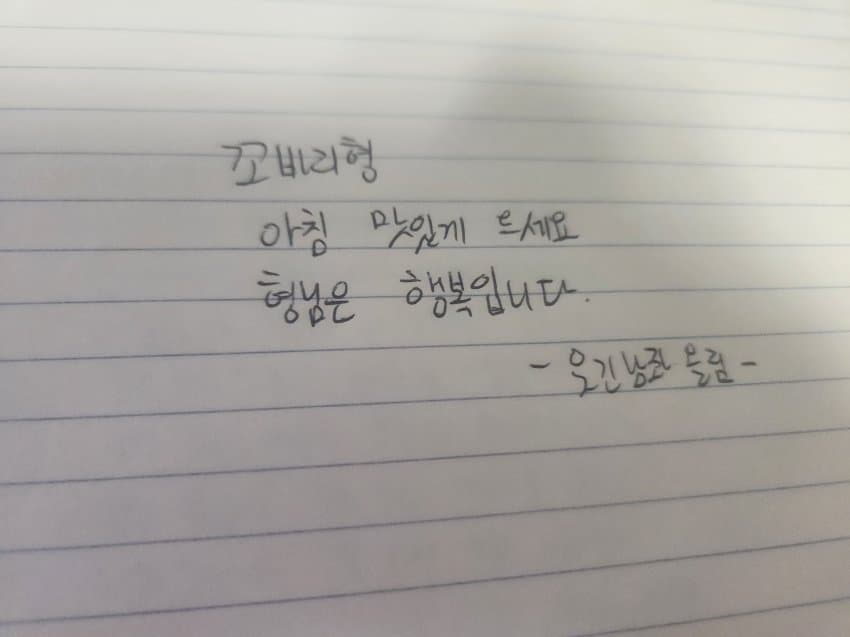 꼬비리형
아침 맛있게 드세요
형님은 행복입니다.
- 웃긴남좌 올림 -